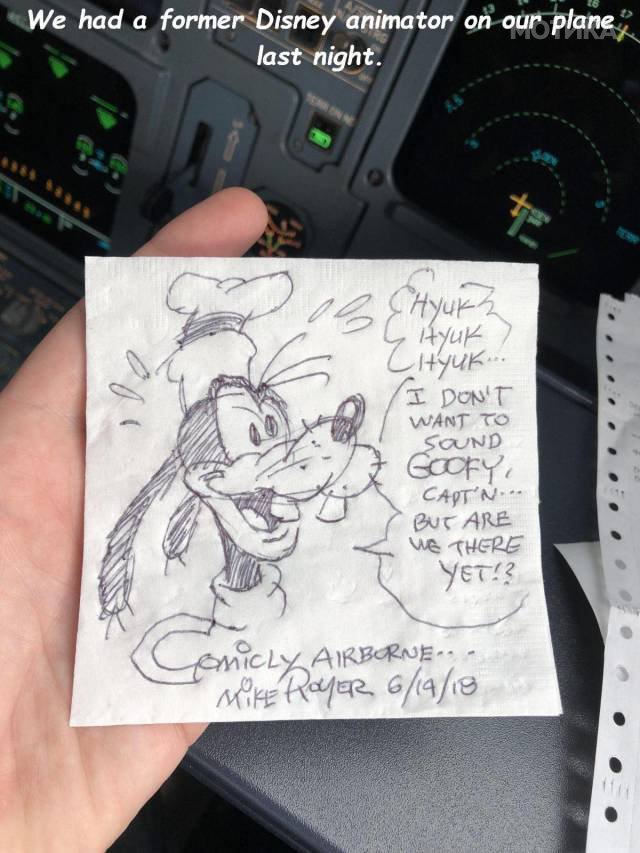 We had a former Disney animator on our plane
last night.
МОТИКА
HYUK
HYUK
HYUK...
I DON'T
WANT TO
SOUND
GOOFY,
CAPT'N...
BUT ARE
WE THERE
YET!?
COMICLY AIRBORNE...
MIKE ROYER 6/14/18